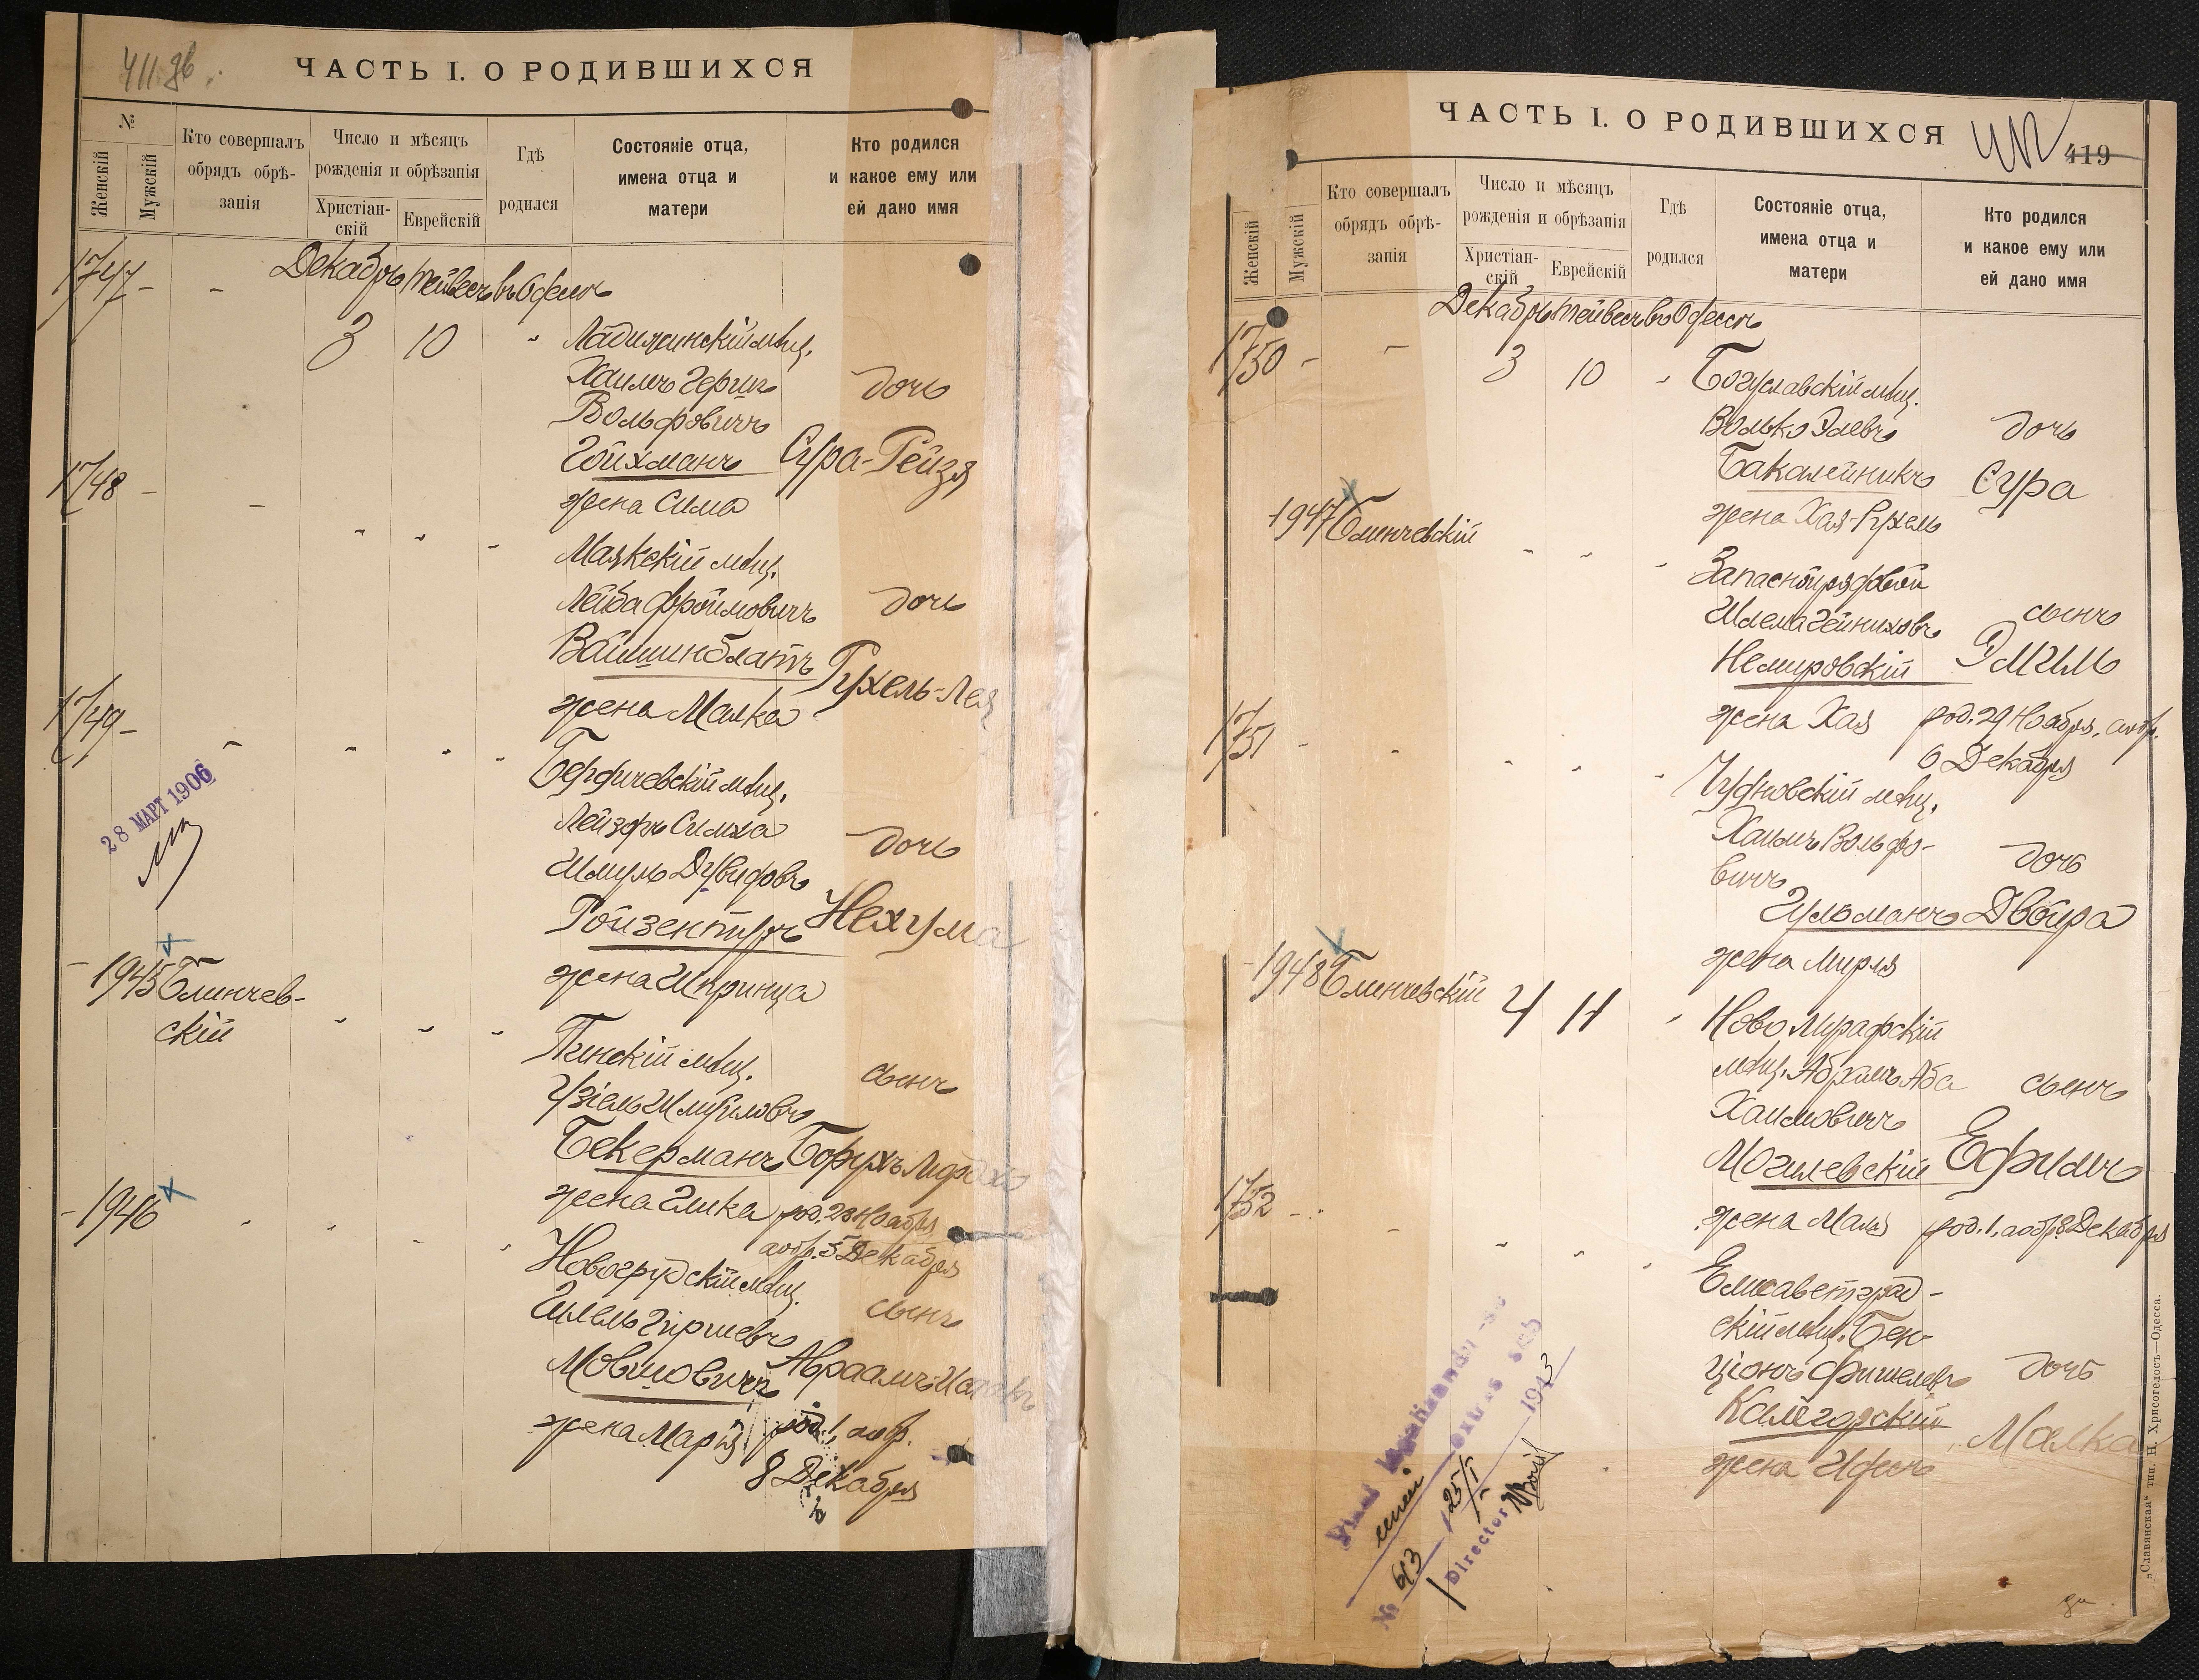 ЧАСТЬ I. О РОДИВШИХСЯ
№
Женскій
Мужскій
Кто совершалъ
обрядъ обрѣ-
занія
Число и мѣсяцъ
рожденія и обрѣзанія
Христіан-
скій
Еврейскій
Гдѣ
родился
Состояніе отца,
имена отца и
матери
Кто родился
и какое ему или
ей дано имя
1747 - -
Декабрь Тейвесъ въ Одессѣ
3 10 "
Ладижинскій мѣщ.
Хаимъ Герш
Вольфовичъ
Гойхманъ
жена Сима
дочь
Сура-Рейзя
1748 - -
Маякскій мѣщ.
Лейба Фроимовичъ
Вайшинблатъ
жена Малка
дочь
Рухель-Лея
1749 -
Бердичевскій мѣщ.
Лейзеръ Симха
Шмуль Дувидовъ
Ройзентуръ
жена Шпринца
дочь
Нехума
28 МАРТ 1906
- 1945 Блинчев-
скій
Пинскій мѣщ.
Узіель Шмуиловъ
Бекерманъ
жена Элька
сынъ
Борухъ Мордхо
род. 28 Ноября
аобр. 5 Декабря
- 1946
Новогрудскій мѣщ.
Гилель Гиршевъ
Мовшовичъ
жена Марія
сынъ
Авраамъ Исаакъ
род. 1, аобр.
8 Декабря
ЧАСТЬ I. О РОДИВШИХСЯ
419
Женскій
Мужскій
Кто совершалъ
обрядъ обрѣ-
занія
Число и мѣсяцъ
рожденія и обрѣзанія
Христіан-
скій
Еврейскій
Гдѣ
родился
Состояніе отца,
имена отца и
матери
Кто родился
и какое ему или
ей дано имя
Декабрь Тейвесъ въ Одессѣ
1750 - -
3 10 "
Богуславскій мѣщ.
Волько Элевъ
Бакалейникъ
жена Хая-Рухель
дочь
Сура
1947 Блинчевскій
Запасной рядовой
Шлема Гейниховъ
Немировскій
жена Хая
сынъ
Эмиль
род. 29 Ноября, аобр.
6 Декабря
1751 -
Чудновскій мѣщ.
Хаимъ Вольфо-
вичъ
Гульманъ
жена Мирля
дочь
Двойра
- 1948 Блинчевскій
4 11 "
Ново Мурафскій
мѣщ. Абрамъ Аба
Хаимовичъ
Могилевскій
жена Маля
сынъ
Ефимъ
род. 1, аобр. 8 Декабря
1752 -
Елисаветград-
скій мѣщ. Бен-
ціонъ Фишелевъ
Калегорскій
жена Идесъ
дочь
Малка
extras
№ 613
25/I
1943
Director
„Славянская" тип. Н. Хрисогелосъ—Одесса.